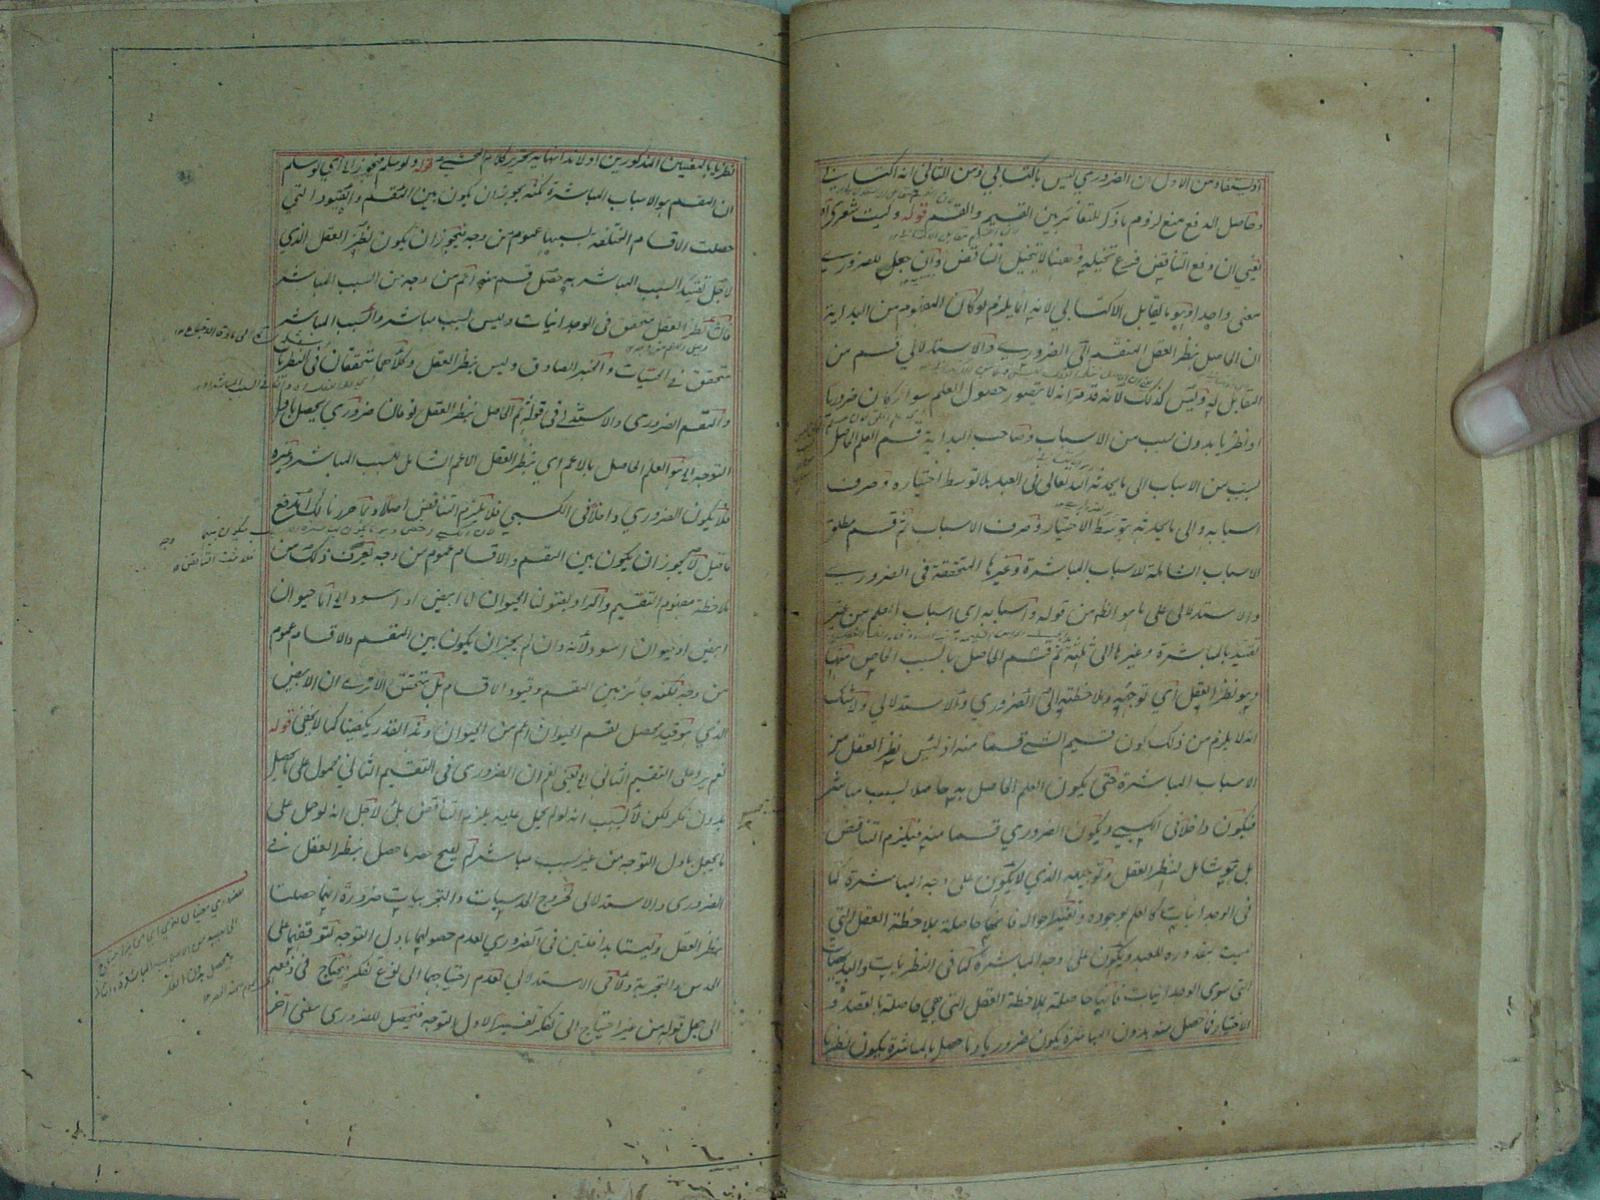 اذ يستفاد من الاول ان الضروري ليس باكتسابي ومن الثاني انه اكتسابي
وحاصل الدفع منع لزوم ما ذكر للتغاير بين القسيم والقسم قوله وليت شعري اه
يعني ان دفع التناقض فرع تخيله وههنا لا يتخيل التناقض وان جعل للضروري
معنى واحد اذ هو ما يقابل الاكتسابي لانه انما يلزم لو كان المفهوم من البداية
ان الحاصل بنظر العقل المنقسم الى الضروري والاستدلالي قسم من
المقابل له وليس كذلك لانه قدمه انه لا يتصور حصول العلم سواء كان ضروريا
او نظريا بدون سبب من الاسباب وصاحب البداية قسم العلم الحاصل
بسبب من الاسباب الى ما يحدثه الله تعالى في العبد بلا توسط اختياره وصرف
اسبابه والى ما يحدثه بتوسط الاختيار وصرف الاسباب ثم قسم مطلق
الاسباب الشاملة للاسباب المباشرة وغيرها المتحققة في الضروري
والاستدلالي على ما هو الظاهر من قوله واسبابه اي اسباب العلم من غير
تقييد بالمباشرة وغيرها الى ثلثة ثم قسم الحاصل بالسبب الخاص منها
وهو نظر العقل اي توجهه وملاحظته الى الضروري والاستدلالي ولا شك
انه لا يلزم من ذلك كون قسيم الشئ قسما منه اذ ليس نظر العقل من
الاسباب المباشرة حتى يكون العلم الحاصل به حاصلا بسبب مباشر
فيكون داخلا في الكسبي ويكون الضروري قسما منه فيلزم التناقض
بل هو شامل لنظر العقل وتوجهه الذي لا يكون على وجه المباشرة كما
في الوجدانيات كالعلم بوجوده وتغير احواله فانها حاصلة بملاحظة العقل التي
ليست مقدوره للعبد ويكون على وجه المباشرة كما في النظريات والبديهيات
التي سوى الوجدانيات فانها حاصلة بملاحظة العقل التي هي حاصلة بالقصد و
الاختيار فما حصل منه بدون المباشرة يكون ضروريا وما حصل بالمباشرة يكون نظريا
نظريا بالمعنيين المذكورين اولا هذا نهاية تحرير كلام المحشي قوله ولو سلم فيجوز اه اي لو سلم
ان المقسم هو الاسباب المباشرة لكنه يجوز ان يكون بين المقسم والقيود التي
حصلت الاقسام المختلفة بسببها عموم من وجه فيجوز ان يكون نظر العقل الذي
لاجل تقييد السبب المباشر به حصل قسم منه اعم من وجه من السبب المباشر
فان نظر العقل متحقق في الوجدانيات وليس بسبب مباشر والسبب المباشر
متحقق في الحسيات والخبر الصادق وليس بنظر العقل وكلاهما متحققان في النظريات
والمقسم الضروري والاستدلالي في قوله ثم الحاصل بنظر العقل نوعان ضروري يحصل باول
التوجه الخ هو العلم الحاصل بالاعم اي بنظر العقل الاعم الشامل للسبب المباشر وغيره
فلا يكون الضروري داخلا في الكسبي فلا يلزم التناقض اصلا وبما حررنا لك اندفع
ما قيل لا يجوز ان يكون بين المقسم والاقسام عموم من وجه يعرف ذلك من
ملاحظة مفهوم التقسيم والمراد بقولنا الحيوان اما ابيض او اسود اي اما حيوان
ابيض او حيوان اسود لانه وان لم يجز ان يكون بين المقسم والاقسام عموم
من وجه لكنه جائز بين المقسم وقيود الاقسام بل متحقق الا ترى ان الابيض
الذي هو قيد محصل لقسم الحيوان اعم من الحيوان وهذا القدر يكفينا كما لا يخفى قوله
نعم يرد على التقسيم الثاني اه يعني نعم ان الضروري في التقسيم الثاني محمول على ما يحصل
بدون فكر لكن لا بسبب انه لو لم يحمل عليه يلزم التناقض بل لاجل انه لو حمل على
ما يحصل باول التوجه من غير سبب مباشر لم يصح حصر ما حصل بنظر العقل في
الضروري والاستدلالي لخروج الحدسيات والتجربيات ضرورة انهما حصلتا
بنظر العقل وليستا بداخلتين في الضروري لعدم حصولهما باول التوجه لتوقفهما على
الحدس والتجربة ولا في الاستدلالي لعدم احتياجهما الى نوع تفكر فيحتاج في دفعه
الى جعل قوله من غير احتياج الى تفكر تفسيرا لاول التوجه فيحصل للضروري معنى آخر